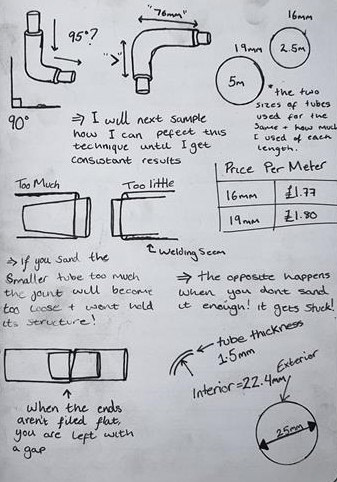 95°?
90°
"76mm"
">"
16mm
2.5m
19mm
5m
*the two
sizes of tubes
used for the
same + how much
I used of each
length.
⇒ I will next sample
how I can pefect this
technique until I get
consistant results
Price Per Meter
16mm £1.77
19mm £1.80
Too Much
Too little
Welding Seem
⇒ if you sand the
smaller tube too much
the joint will become
too loose + wont hold
its structure!
⇒ The opposite happens
when you dont sand
it enough! it gets stuck!
tube thickness
1.5mm
Interior=22.4mm
Exterior
25mm
when the ends
aren't filed flat,
you are left with
a gap